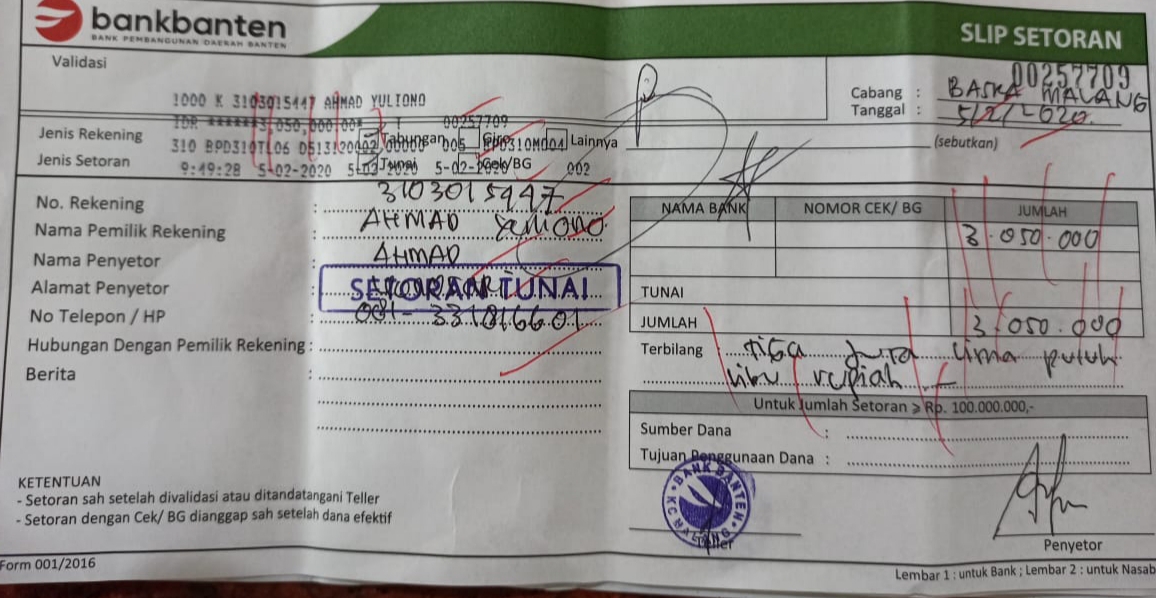 bankbanten
BANK PEMBANGUNAN DAERAH BANTEN
SLIP SETORAN
Validasi
00257709
Cabang : BASKA MALANG
Tanggal : 5/2/-020.
1000 K 3103015447 AHMAD YULIONO
IDR ******3,050,000.00* 00257709
Jenis Rekening Tabungan Giro Lainnya (sebutkan)
310 BPD310TL06 D5131 005
Jenis Setoran Tunai Cek/BG
9:49:28 5-02-2020 5-02-2020 5-02-2020 002
No. Rekening : 3103015447
Nama Pemilik Rekening : AHMAD Yuliono
Nama Penyetor : AHMAD
Alamat Penyetor :
SETORAN TUNAI
No Telepon / HP : 081-331816601
Hubungan Dengan Pemilik Rekening :
Berita :
NAMA BANK NOMOR CEK/ BG JUMLAH
3.050.000
TUNAI
JUMLAH 3.050.000
Terbilang tiga juta lima puluh
ribu rupiah
Untuk Jumlah Setoran ⩾ Rp. 100.000.000,-
Sumber Dana :
Tujuan Penggunaan Dana :
BANK BANTEN
Teller
Penyetor
KETENTUAN
- Setoran sah setelah divalidasi atau ditandatangani Teller
- Setoran dengan Cek/ BG dianggap sah setelah dana efektif
Form 001/2016
Lembar 1 : untuk Bank ; Lembar 2 : untuk Nasab